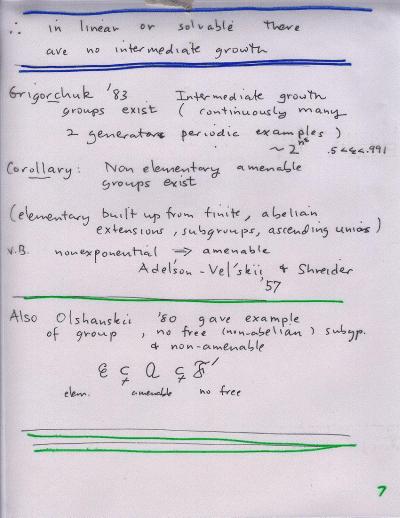 ∴ in linear or solvable there
are no intermediate growth
Grigorchuk '83 Intermediate growth
groups exist (continuously many
2 generator periodic examples)
~ 2^{n^ε} .5 < ε < .991
Corollary: Non elementary amenable
groups exist
(elementary built up from finite, abelian
extensions, subgroups, ascending unions)
v.B. nonexponential ⇒ amenable
Adelson-Vel'skii & Shreider
'57
Also Olshanskii '80 gave example
of group, no free (non-abelian) subgp.
& non-amenable
ℰ ⊊ 𝒜 ⊊ ℱ'
elem. amenable no free
7